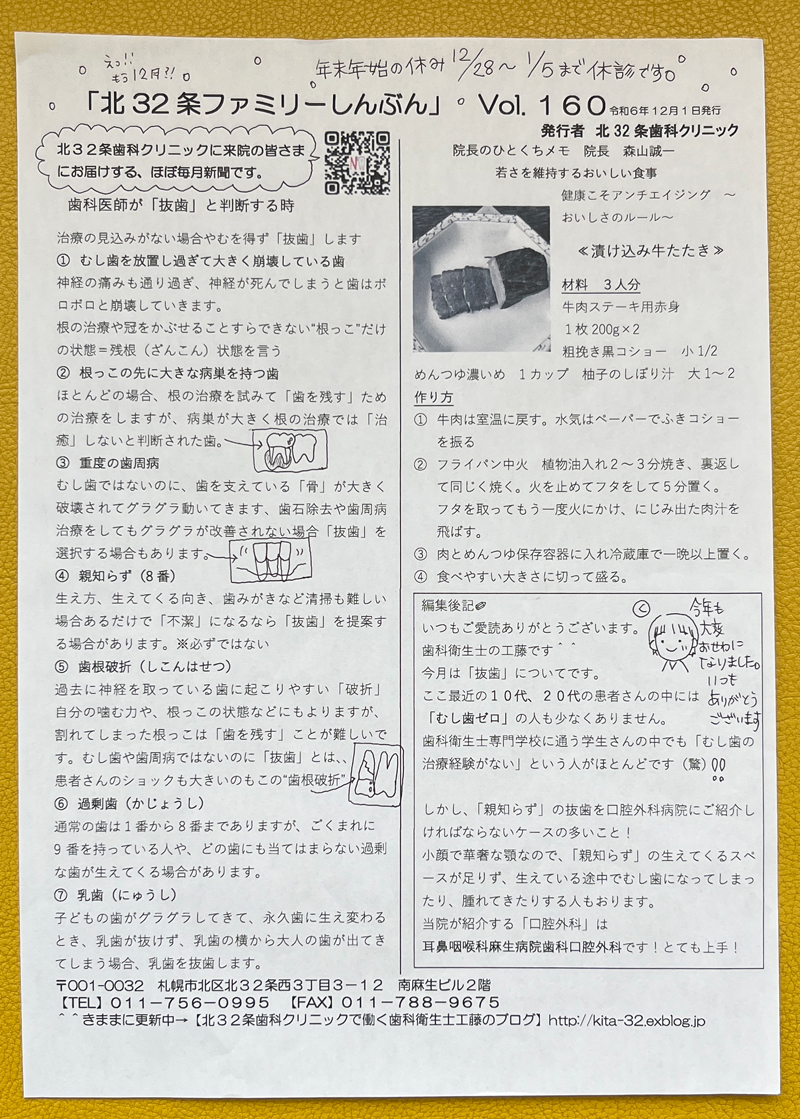 えっ!!
もう12月?!
年末年始の休み 12/28～1/5まで休診です。
「北32条ファミリーしんぶん」 Vol. 160 令和6年12月1日発行
発行者 北32条歯科クリニック
北32条歯科クリニックに来院の皆さま
にお届けする、ほぼ毎月新聞です。
歯科医師が「抜歯」と判断する時
治療の見込みがない場合やむを得ず「抜歯」します
① むし歯を放置し過ぎて大きく崩壊している歯
神経の痛みも通り過ぎ、神経が死んでしまうと歯はボ
ロボロと崩壊していきます。
根の治療や冠をかぶせることすらできない“根っこ”だけ
の状態＝残根（ざんこん）状態を言う
② 根っこの先に大きな病巣を持つ歯
ほとんどの場合、根の治療を試みて「歯を残す」ため
の治療をしますが、病巣が大きく根の治療では「治
癒」しないと判断された歯。
③ 重度の歯周病
むし歯ではないのに、歯を支えている「骨」が大きく
破壊されてグラグラ動いてきます、歯石除去や歯周病
治療をしてもグラグラが改善されない場合「抜歯」を
選択する場合もあります。
④ 親知らず（8番）
生え方、生えてくる向き、歯みがきなど清掃も難しい
場合あるだけで「不潔」になるなら「抜歯」を提案す
る場合があります。※必ずではない
⑤ 歯根破折（しこんはせつ）
過去に神経を取っている歯に起こりやすい「破折」
自分の噛む力や、根っこの状態などにもよりますが、
割れてしまった根っこは「歯を残す」ことが難しいで
す。むし歯や歯周病ではないのに「抜歯」とは、、
患者さんのショックも大きいのもこの“歯根破折”
⑥ 過剰歯（かじょうし）
通常の歯は１番から８番までありますが、ごくまれに
９番を持っている人や、どの歯にも当てはまらない過剰
な歯が生えてくる場合があります。
⑦ 乳歯（にゅうし）
子どもの歯がグラグラしてきて、永久歯に生え変わる
とき、乳歯が抜けず、乳歯の横から大人の歯が出てき
てしまう場合、乳歯を抜歯します。
院長のひとくちメモ 院長 森山誠一
若さを維持するおいしい食事
健康こそアンチエイジング ～
おいしさのルール～
≪漬け込み牛たたき≫
材料 ３人分
牛肉ステーキ用赤身
１枚200g×2
粗挽き黒コショー 小1/2
めんつゆ濃いめ １カップ 柚子のしぼり汁 大1～2
作り方
① 牛肉は室温に戻す。水気はペーパーでふきコショー
を振る
② フライパン中火 植物油入れ２～３分焼き、裏返し
て同じく焼く。火を止めてフタをして５分置く。
フタを取ってもう一度火にかけ、にじみ出た肉汁を
飛ばす。
③ 肉とめんつゆ保存容器に入れ冷蔵庫で一晩以上置く。
④ 食べやすい大きさに切って盛る。
編集後記
いつもご愛読ありがとうございます。
歯科衛生士の工藤です＾＾
今月は「抜歯」についてです。
ここ最近の１０代、２０代の患者さんの中には
「むし歯ゼロ」の人も少なくありません。
歯科衛生士専門学校に通う学生さんの中でも「むし歯の
治療経験がない」という人がほとんどです（驚）!!
しかし、「親知らず」の抜歯を口腔外科病院にご紹介し
ければならないケースの多いこと！
小顔で華奢な顎なので、「親知らず」の生えてくるスペ
ースが足りず、生えている途中でむし歯になってしまっ
たり、腫れてきたりする人もおります。
当院が紹介する「口腔外科」は
耳鼻咽喉科麻生病院歯科口腔外科です！とても上手！
く
今年も
大変
おせわに
なりました。
いつも
ありがとう
ございます
〒001-0032 札幌市北区北３２条西３丁目３－１２ 南麻生ビル２階
【TEL】011-756-0995 【FAX】011-788-9675
＾＾きままに更新中→【北３２条歯科クリニックで働く歯科衛生士工藤のブログ】http://kita-32.exblog.jp